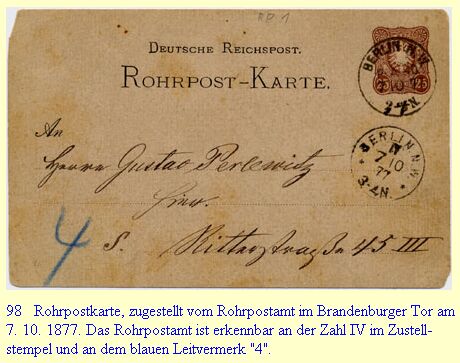 RP 1
DEUTSCHE REICHSPOST.
ROHRPOST-KARTE.
BERLIN N.W.
3-4N.
BERLIN N.W.
IV
7 10
77
3-4N.
An
Herrn Gustav Perlewitz
Hier.
4 S. Ritterstraße 45 III
98 Rohrpostkarte, zugestellt vom Rohrpostamt im Brandenburger Tor am
7. 10. 1877. Das Rohrpostamt ist erkennbar an der Zahl IV im Zustell-
stempel und an dem blauen Leitvermerk "4".